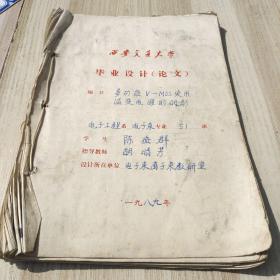 西安交通大学
毕业设计(论文)
题目 多功能V-MOS使用
温度电源的研制
电子工程系 电子束专业 51 班
学生 陈俊群
指导教师 胡靖芳
设计所在单位 电子束离子束教研室
一九八九年